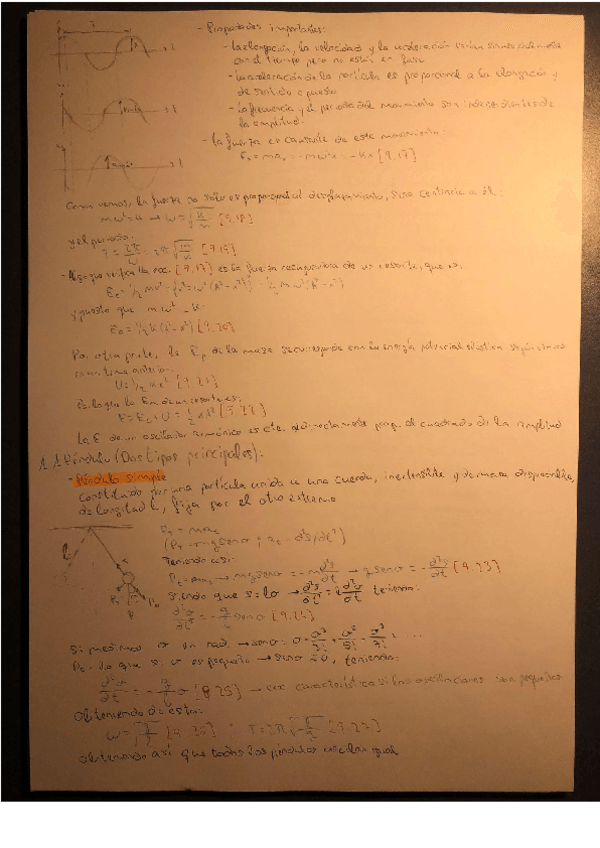 - Propiedades importantes:
- La elongación, la velocidad y la aceleración varían senoidalmente
con el tiempo pero no están en fase
- La aceleración de la partícula es proporcional a la elongación y
de sentido opuesto
- La frecuencia y el periodo del movimiento son independientes de
la amplitud.
- La fuerza es causante de este movimiento:
= -mω²x = -Kx [9.17]
Como vemos, la fuerza no solo es proporcional al desplazamiento, sino contraria a él:
mω² = K → ω = √(K/m) [9.18]
y el periodo:
T = 2π/ω = 2π√(m/K) [9.19]
verifica la ecc. [9.17] es la fuerza recuperadora de un resorte, que es:
y puesto que mω² = K:
Ec = 1/2 K(A² - x²) [9.20]
Por otra parte, la Ep de la masa se corresponde con la energía potencial elástica según vimos
en un tema anterior:
U = 1/2 Kx² [9.21]
Es luego la Em de un resorte es:
E = Ec + U = 1/2 KA² [9.22]
La E de un oscilador armónico es cte. directamente prop. al cuadrado de la amplitud
Péndulo (Dos tipos principales):
- Péndulo simple
Constituido por una partícula unida a una cuerda, inextensible y de masa despreciable,
de longitud L, fija por el otro extremo
(Pt = -mg senσ; at = d²s/dt²)
Teniendo así:
→ g senσ = -d²s/dt [9.23]
siendo que s = lσ → tenemos:
= -g/l senσ [9.24]
Si medimos σ en rad. → senσ = σ - σ³/3! + σ⁵/5! - ...
Por lo que si σ es pequeño → senσ ≅ σ, teniendo:
= -g/l σ [9.25] → ecc característica si las oscilaciones son pequeñas
Obteniendo de esta:
ω = √(g/l) [9.26]
Obteniendo así que todos los péndulos oscilan igual